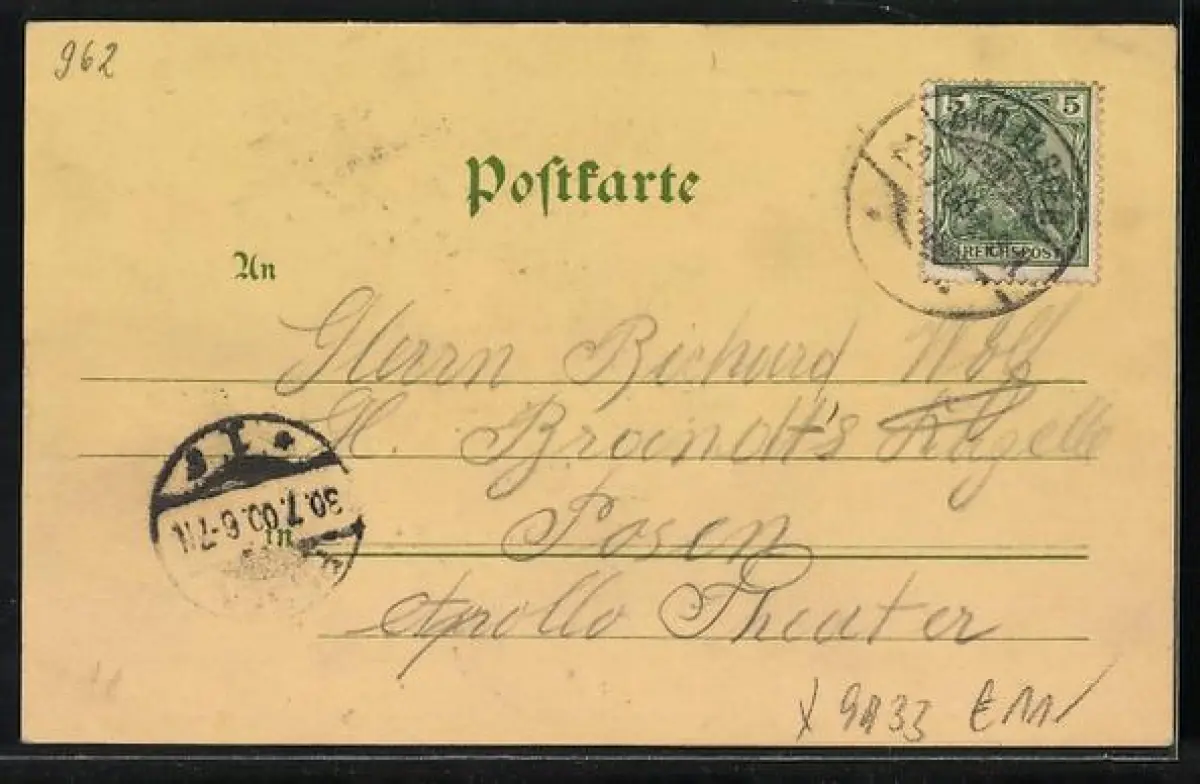 962
Postkarte
5 5
REICHSPOST
An
Herrn Richard Wolf
Brandt's
30.7.00.6-7N.
in Posen
Apollo Theater